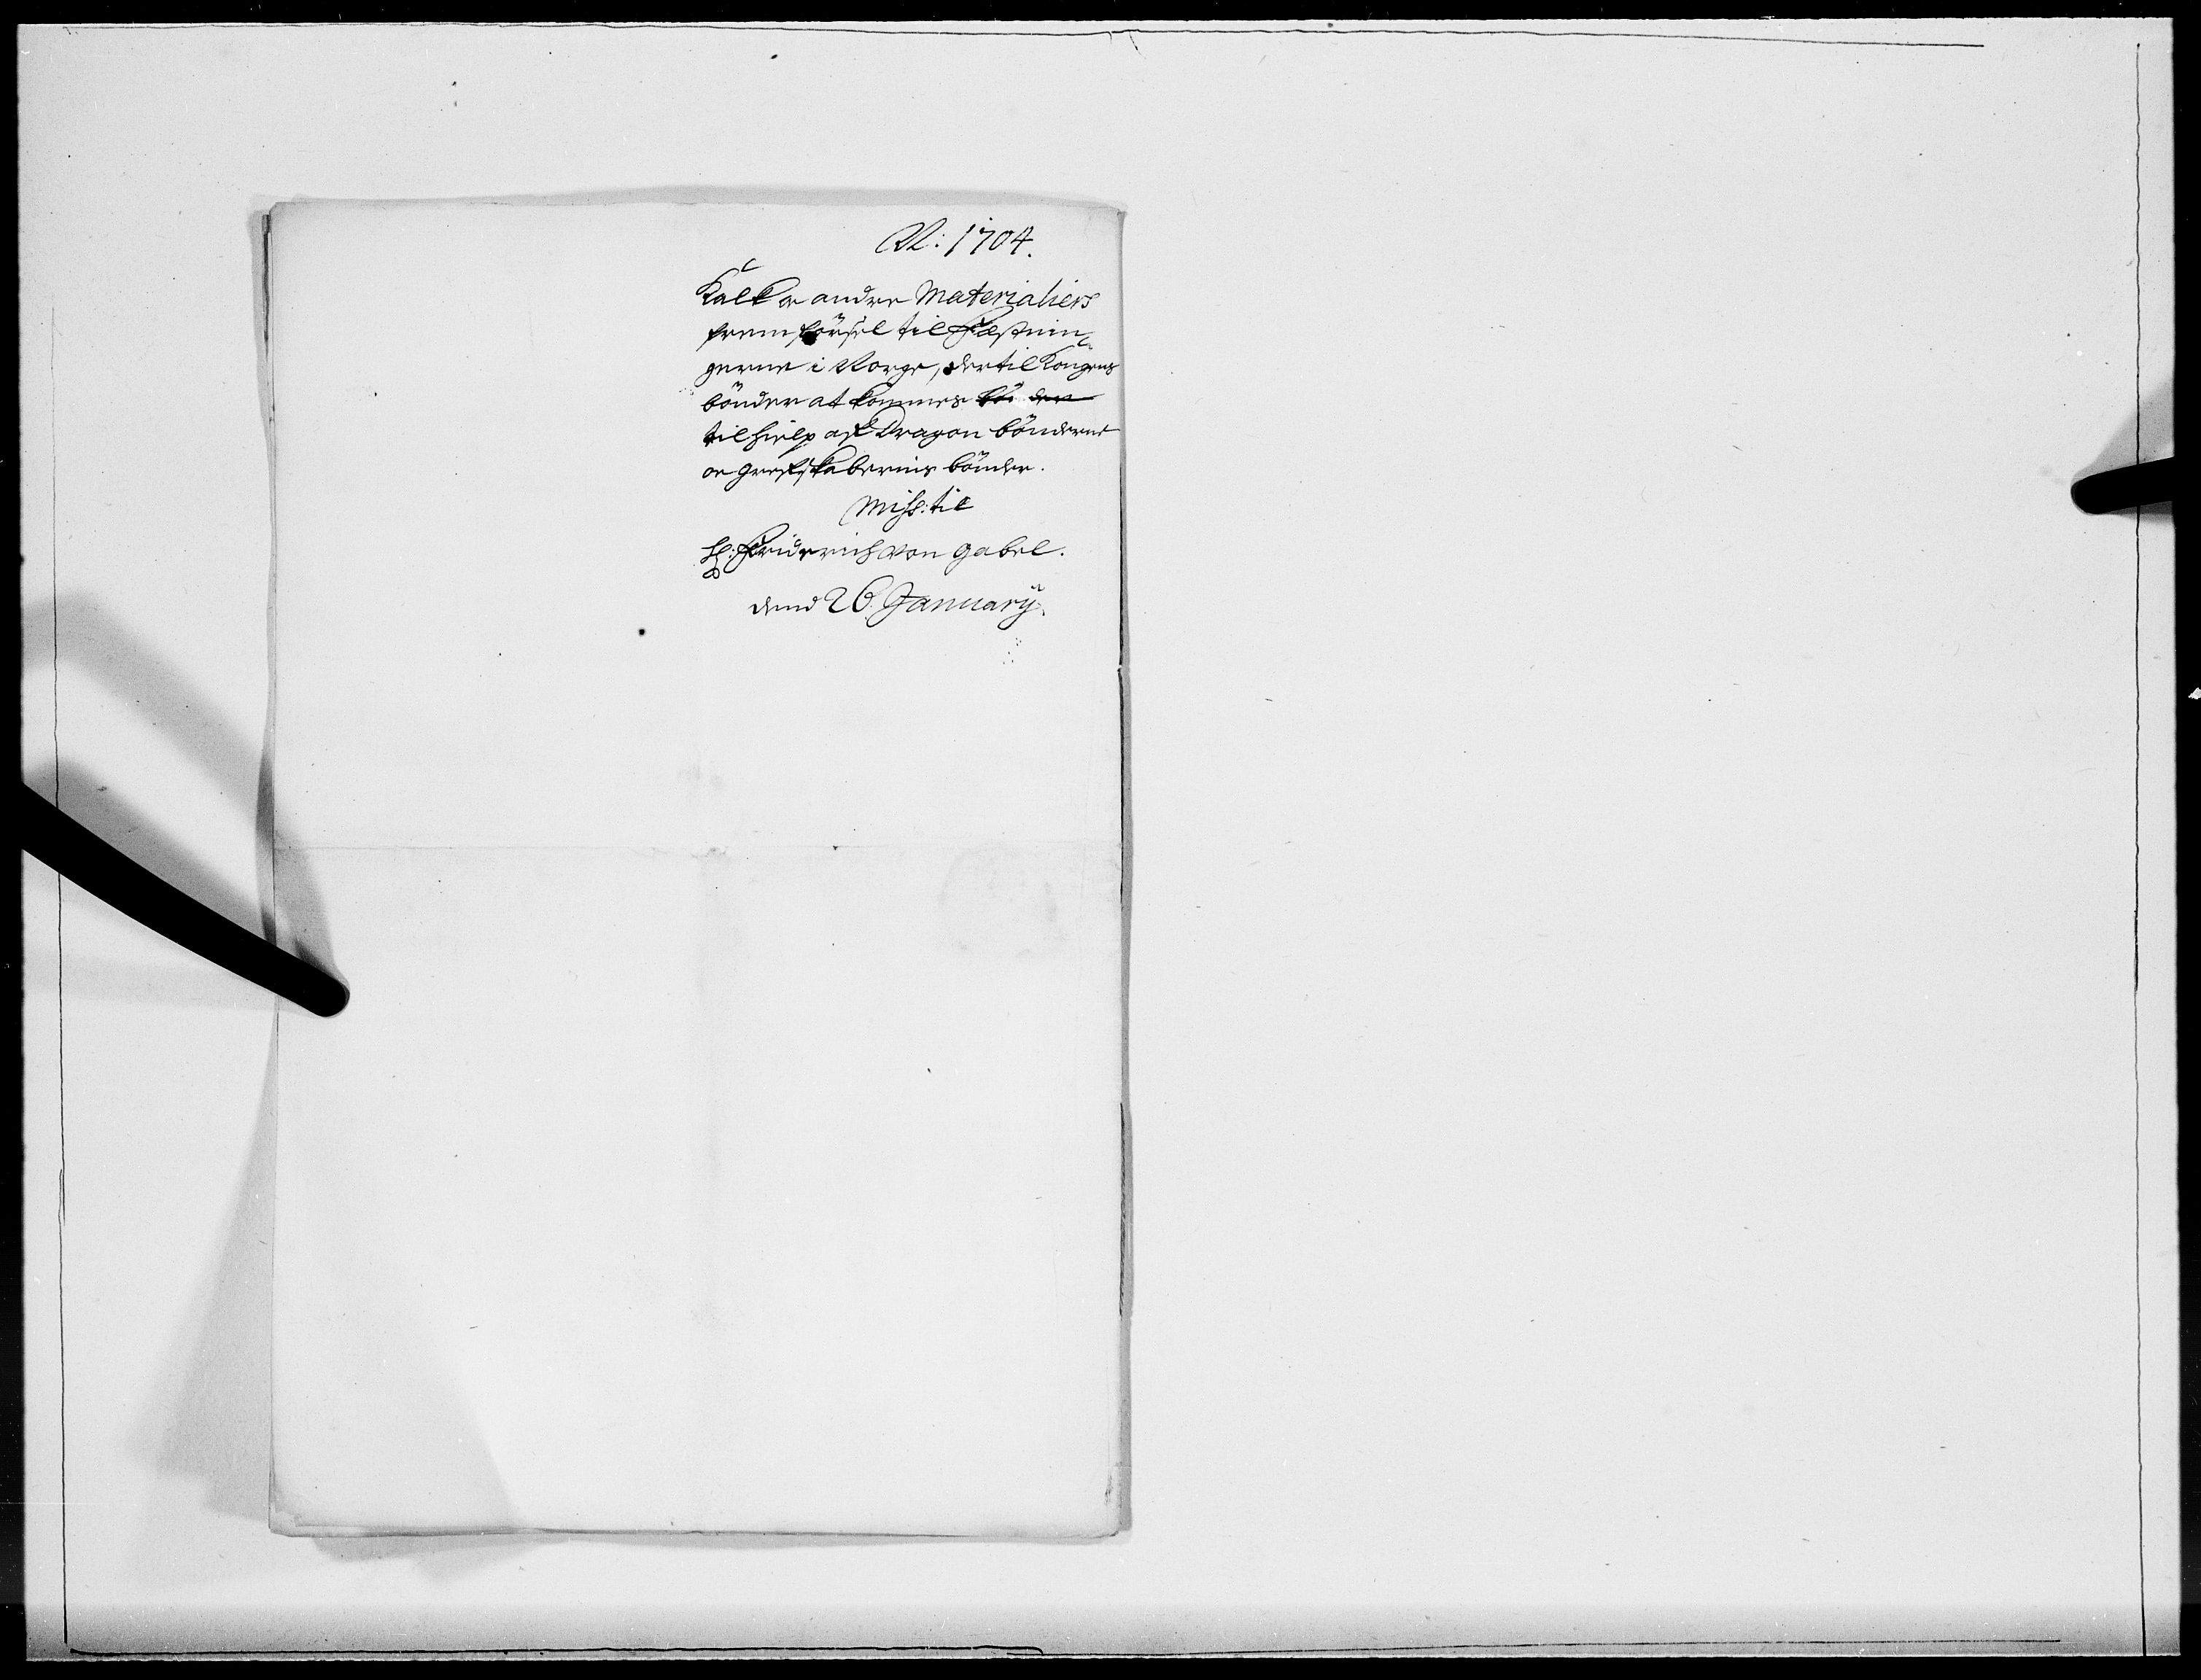 N: 1704.
Kalk oc andre Materialiers
fremförsel til Fæstnin¬
gerne i Norge, dertil Kongens
bönder at kommes
til hielp af Dragon bönderne
oc grefskabernis bönder.
Miss: til
H: Friderich von Gabel.
dend 26. January.